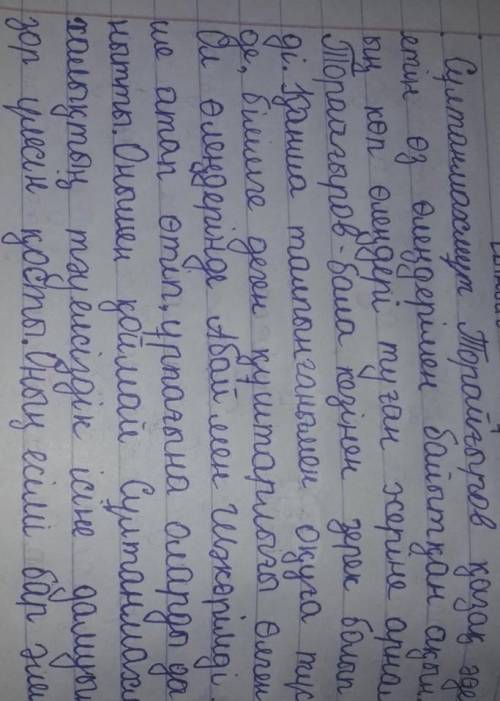 Султанмахмут Торайғыров қазақ әде
етін өз өлеңдерімен байытқан ақын.
ың көп өлеңдері туған жеріне арнал
Торайғыров-бала кезінен зерек болып
ді. Қанша талпынғанымен оқуға түс
де, білімге деген құштарлығы өлген
Ол өлеңдерінде Абай мен Шәкәрімді
ше атап өтіп, ұрпағына оларды да
нытты. Онымен қоймай Сұлтанмахм
халықтың тәуелсіздік ісіне дамуы
зор үлесін қосты. Оның есімі бар әлем